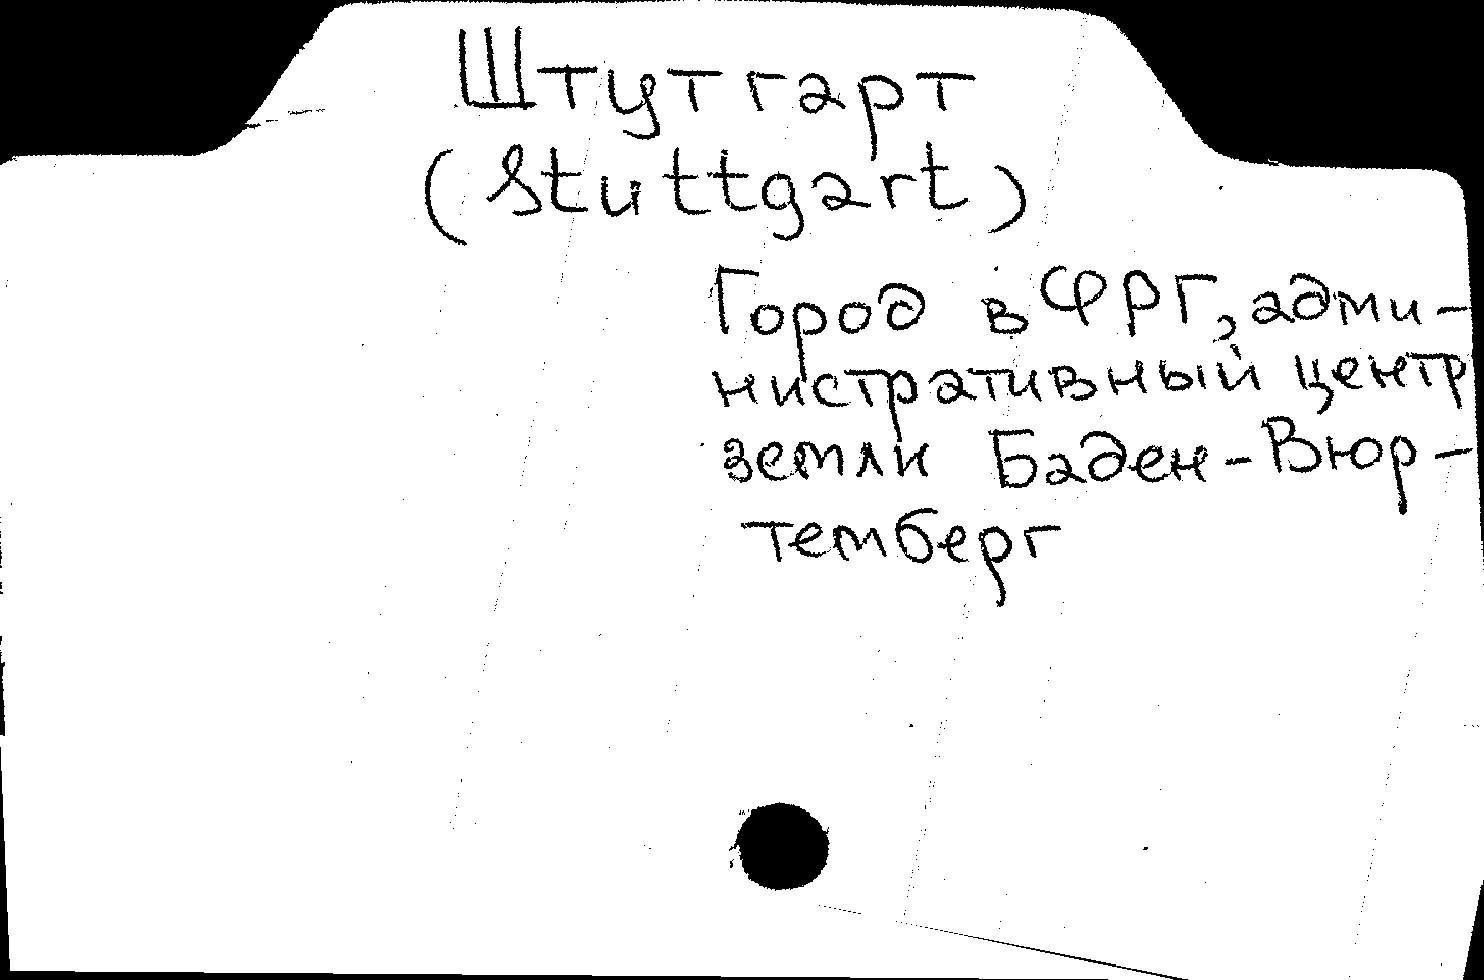 Штутгарт
(Stuttgart)
Город в ФРГ, адми-
нистративный центр
земли Баден-Вюр-
темберг